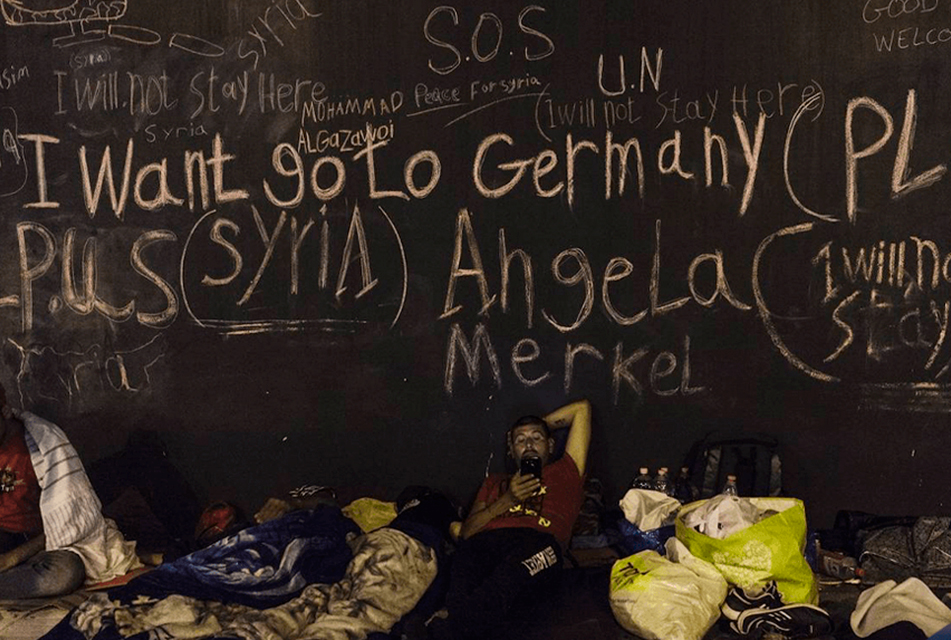 Syria
S.O.S
GOOD
WELCO
(Syria)
U.N
I will not stay Here
Peace For syria
(I will not stay Here)
MOHAMMAD
ALGAZAWOI
Syria
I Want go to Germany (PL
P.U.S (SYRIA) Angela (I will no
stay
Merkel